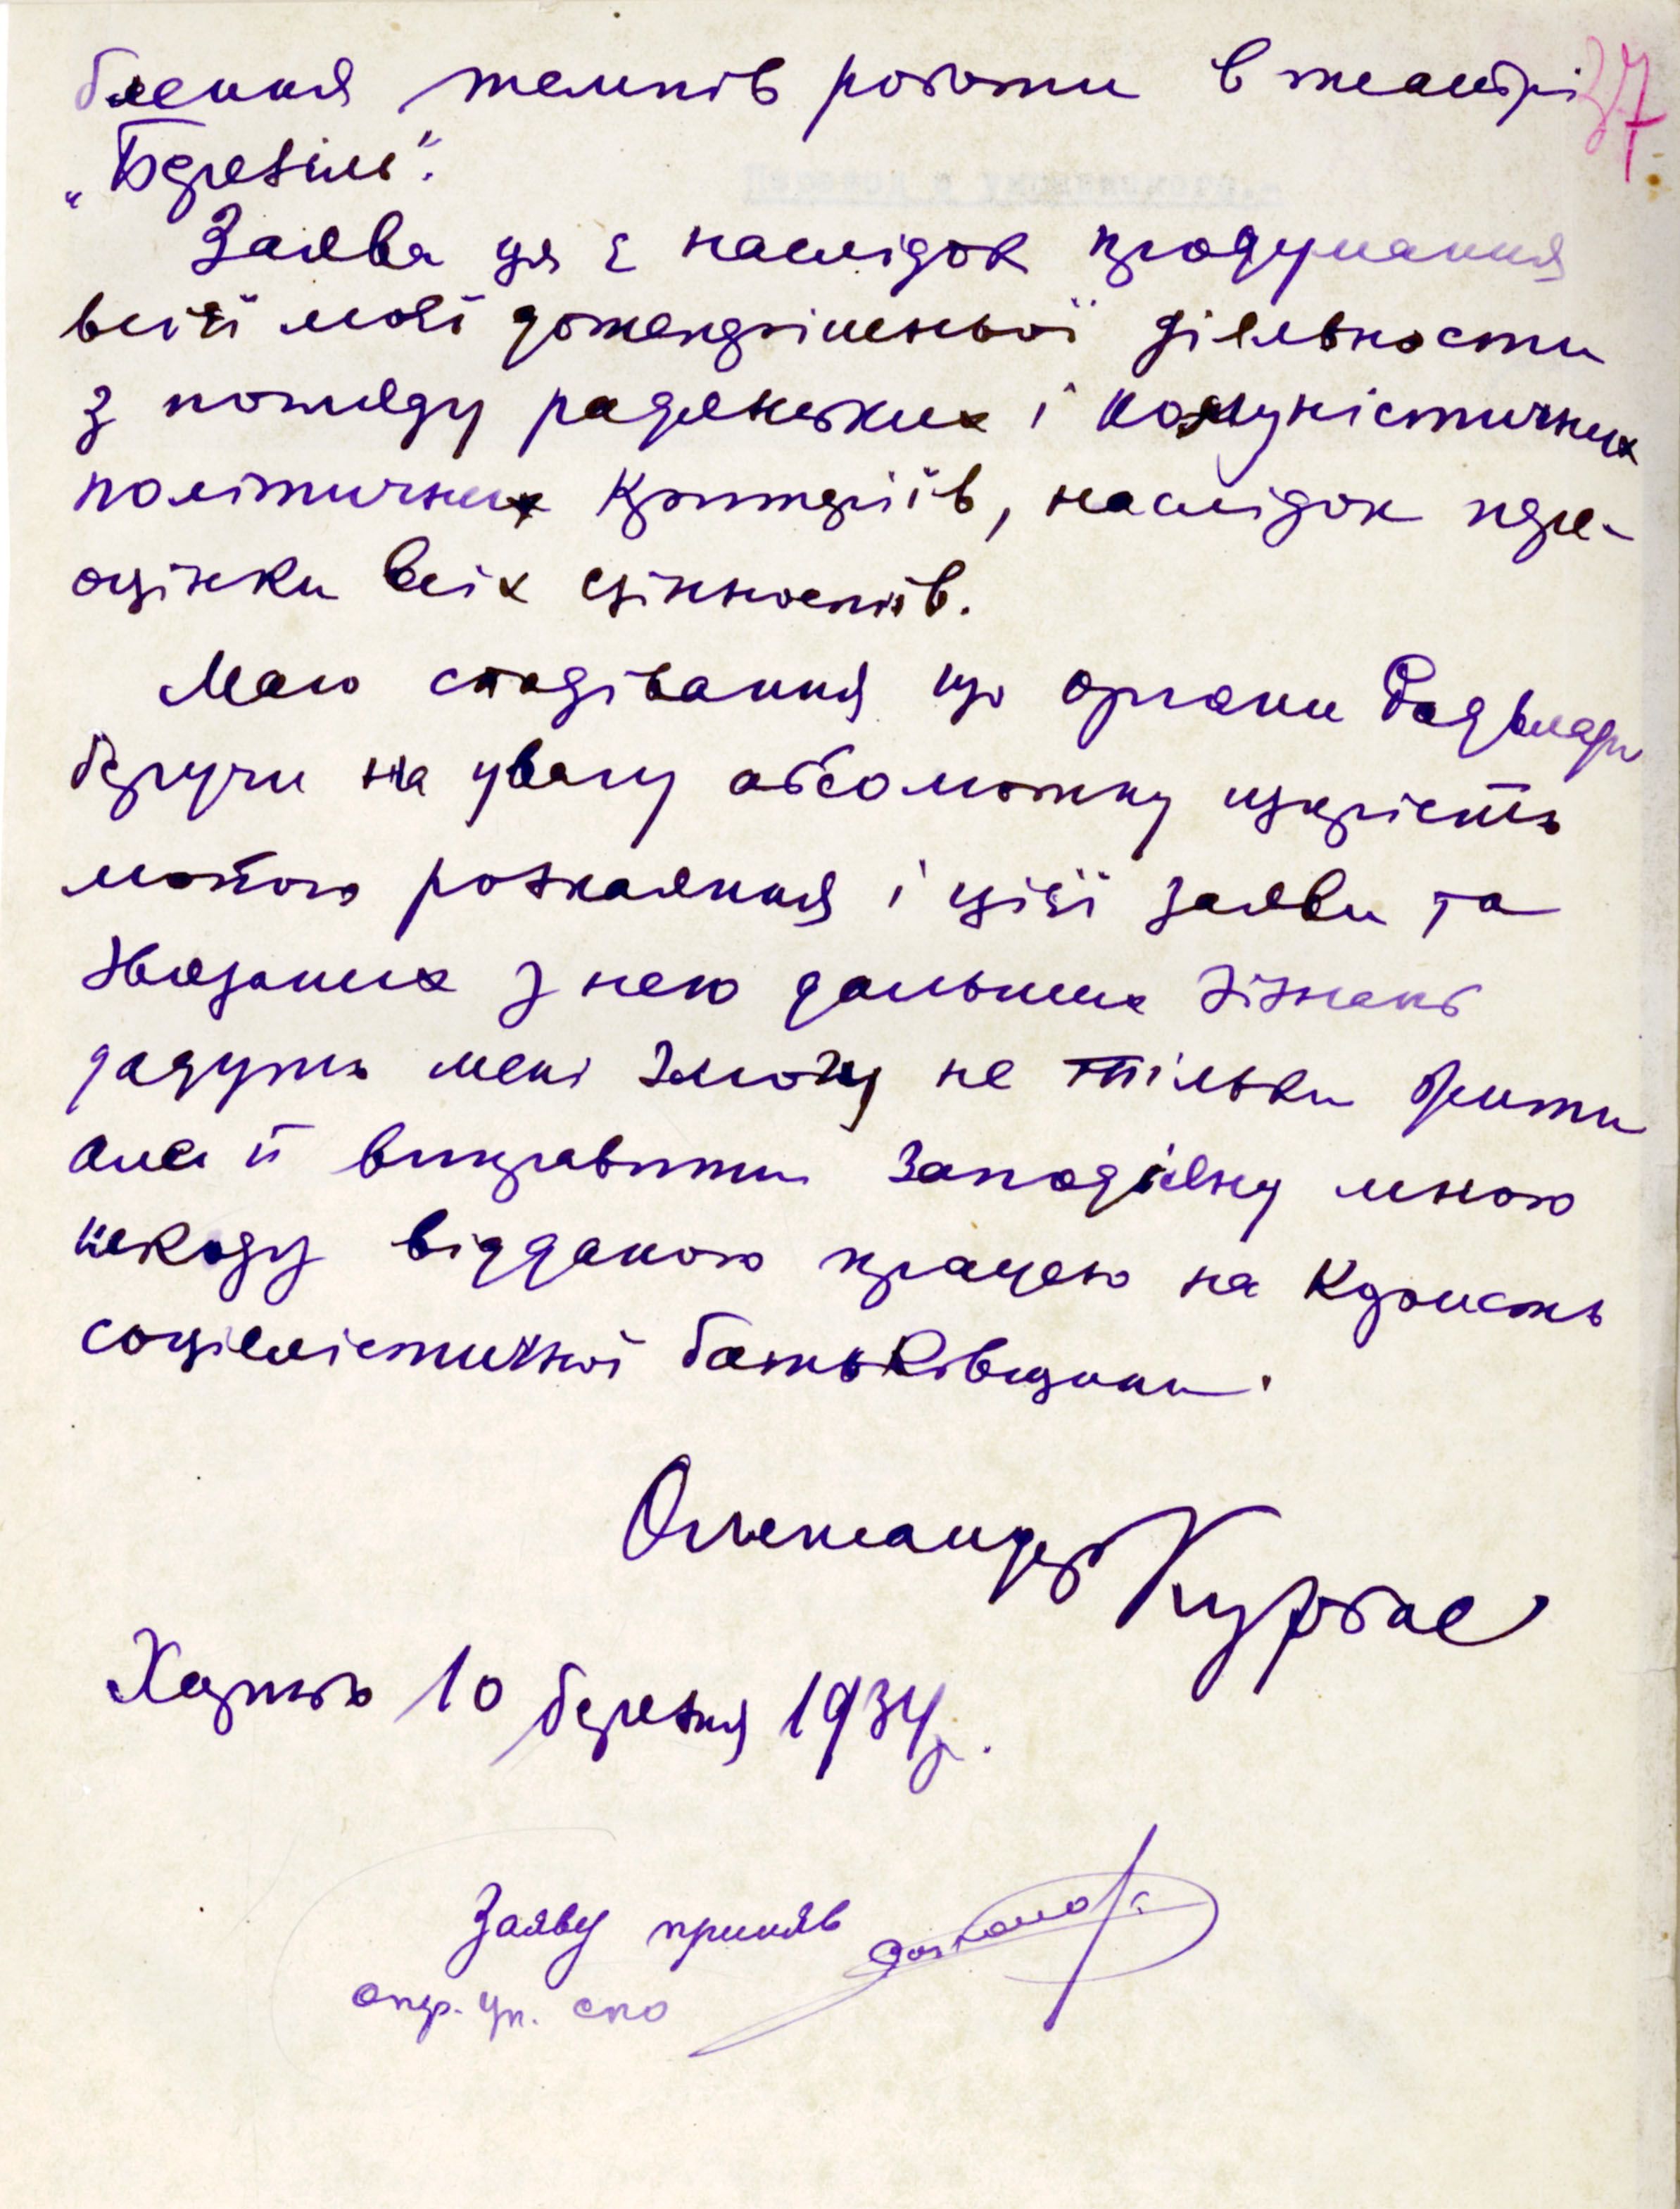 37
блення темпів роботи в театрі
„Березіль".
Заява ця є наслідок продумання
всієї моєї дотеперішньої діяльности
з погляду радянських і комуністичних
політичних критеріїв, наслідок пере-
оцінки всіх цінностів.
Маю сподівання що органи Радвлади
беручи на увагу абсолютну щирість
мойого розкаяння і цієї заяви та
звязаних з нею дальших зізнань
дадуть мені змогу не тільки жити
але й виправити заподіяну мною
шкоду відданою працею на користь
соціялістичної батьківщини.
Олександер Курбас
Харків 10 березня 1934 р.
Заяву приняв
опер. уп. спо